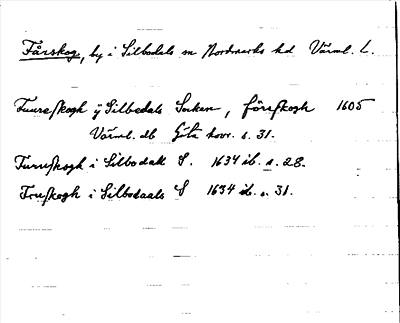 Fårskog, by i Silbodals sn Nordmarks hd Värml. L.
Fuureskogh ÿ Silbedals Socken, försskogh 1605
Värml. db Göta hovr. s. 31.
Furuskogh i Silbodals S. 1634 ib. s. 28.
Fruskogh i Silbodaals S 1634 ib. s. 31.